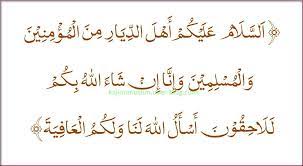 ﴿ اَلسَّلَامُ عَلَيْكُمْ أَهْلَ الدِّيَارِ مِنَ الْمُؤْمِنِيْنَ
وَالْمُسْلِمِيْنَ وَإِنَّا إِنْ شَاءَ اللهُ بِكُمْ
لَلَاحِقُوْنَ أَسْأَلُ اللهَ لَنَا وَلَكُمُ الْعَافِيَةَ ﴾